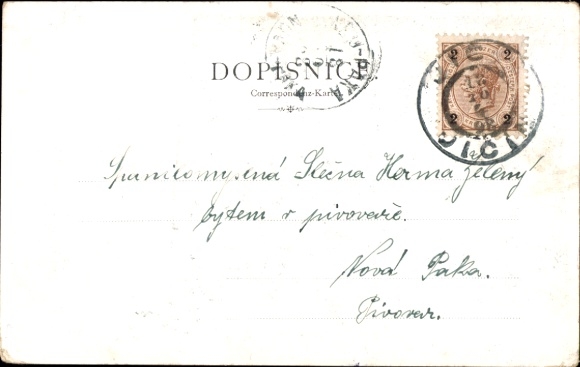 DOPISNICE
Correspondenz-Karte
2 2
2 2
JIČÍN
Slečna Herma Zelený
bytem v pivovaře.
Nová Paka.
Pivovar.